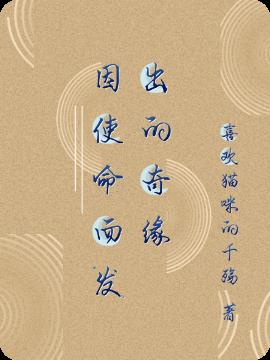 因使命而发
出的奇缘
喜欢猫咪的千殇 著